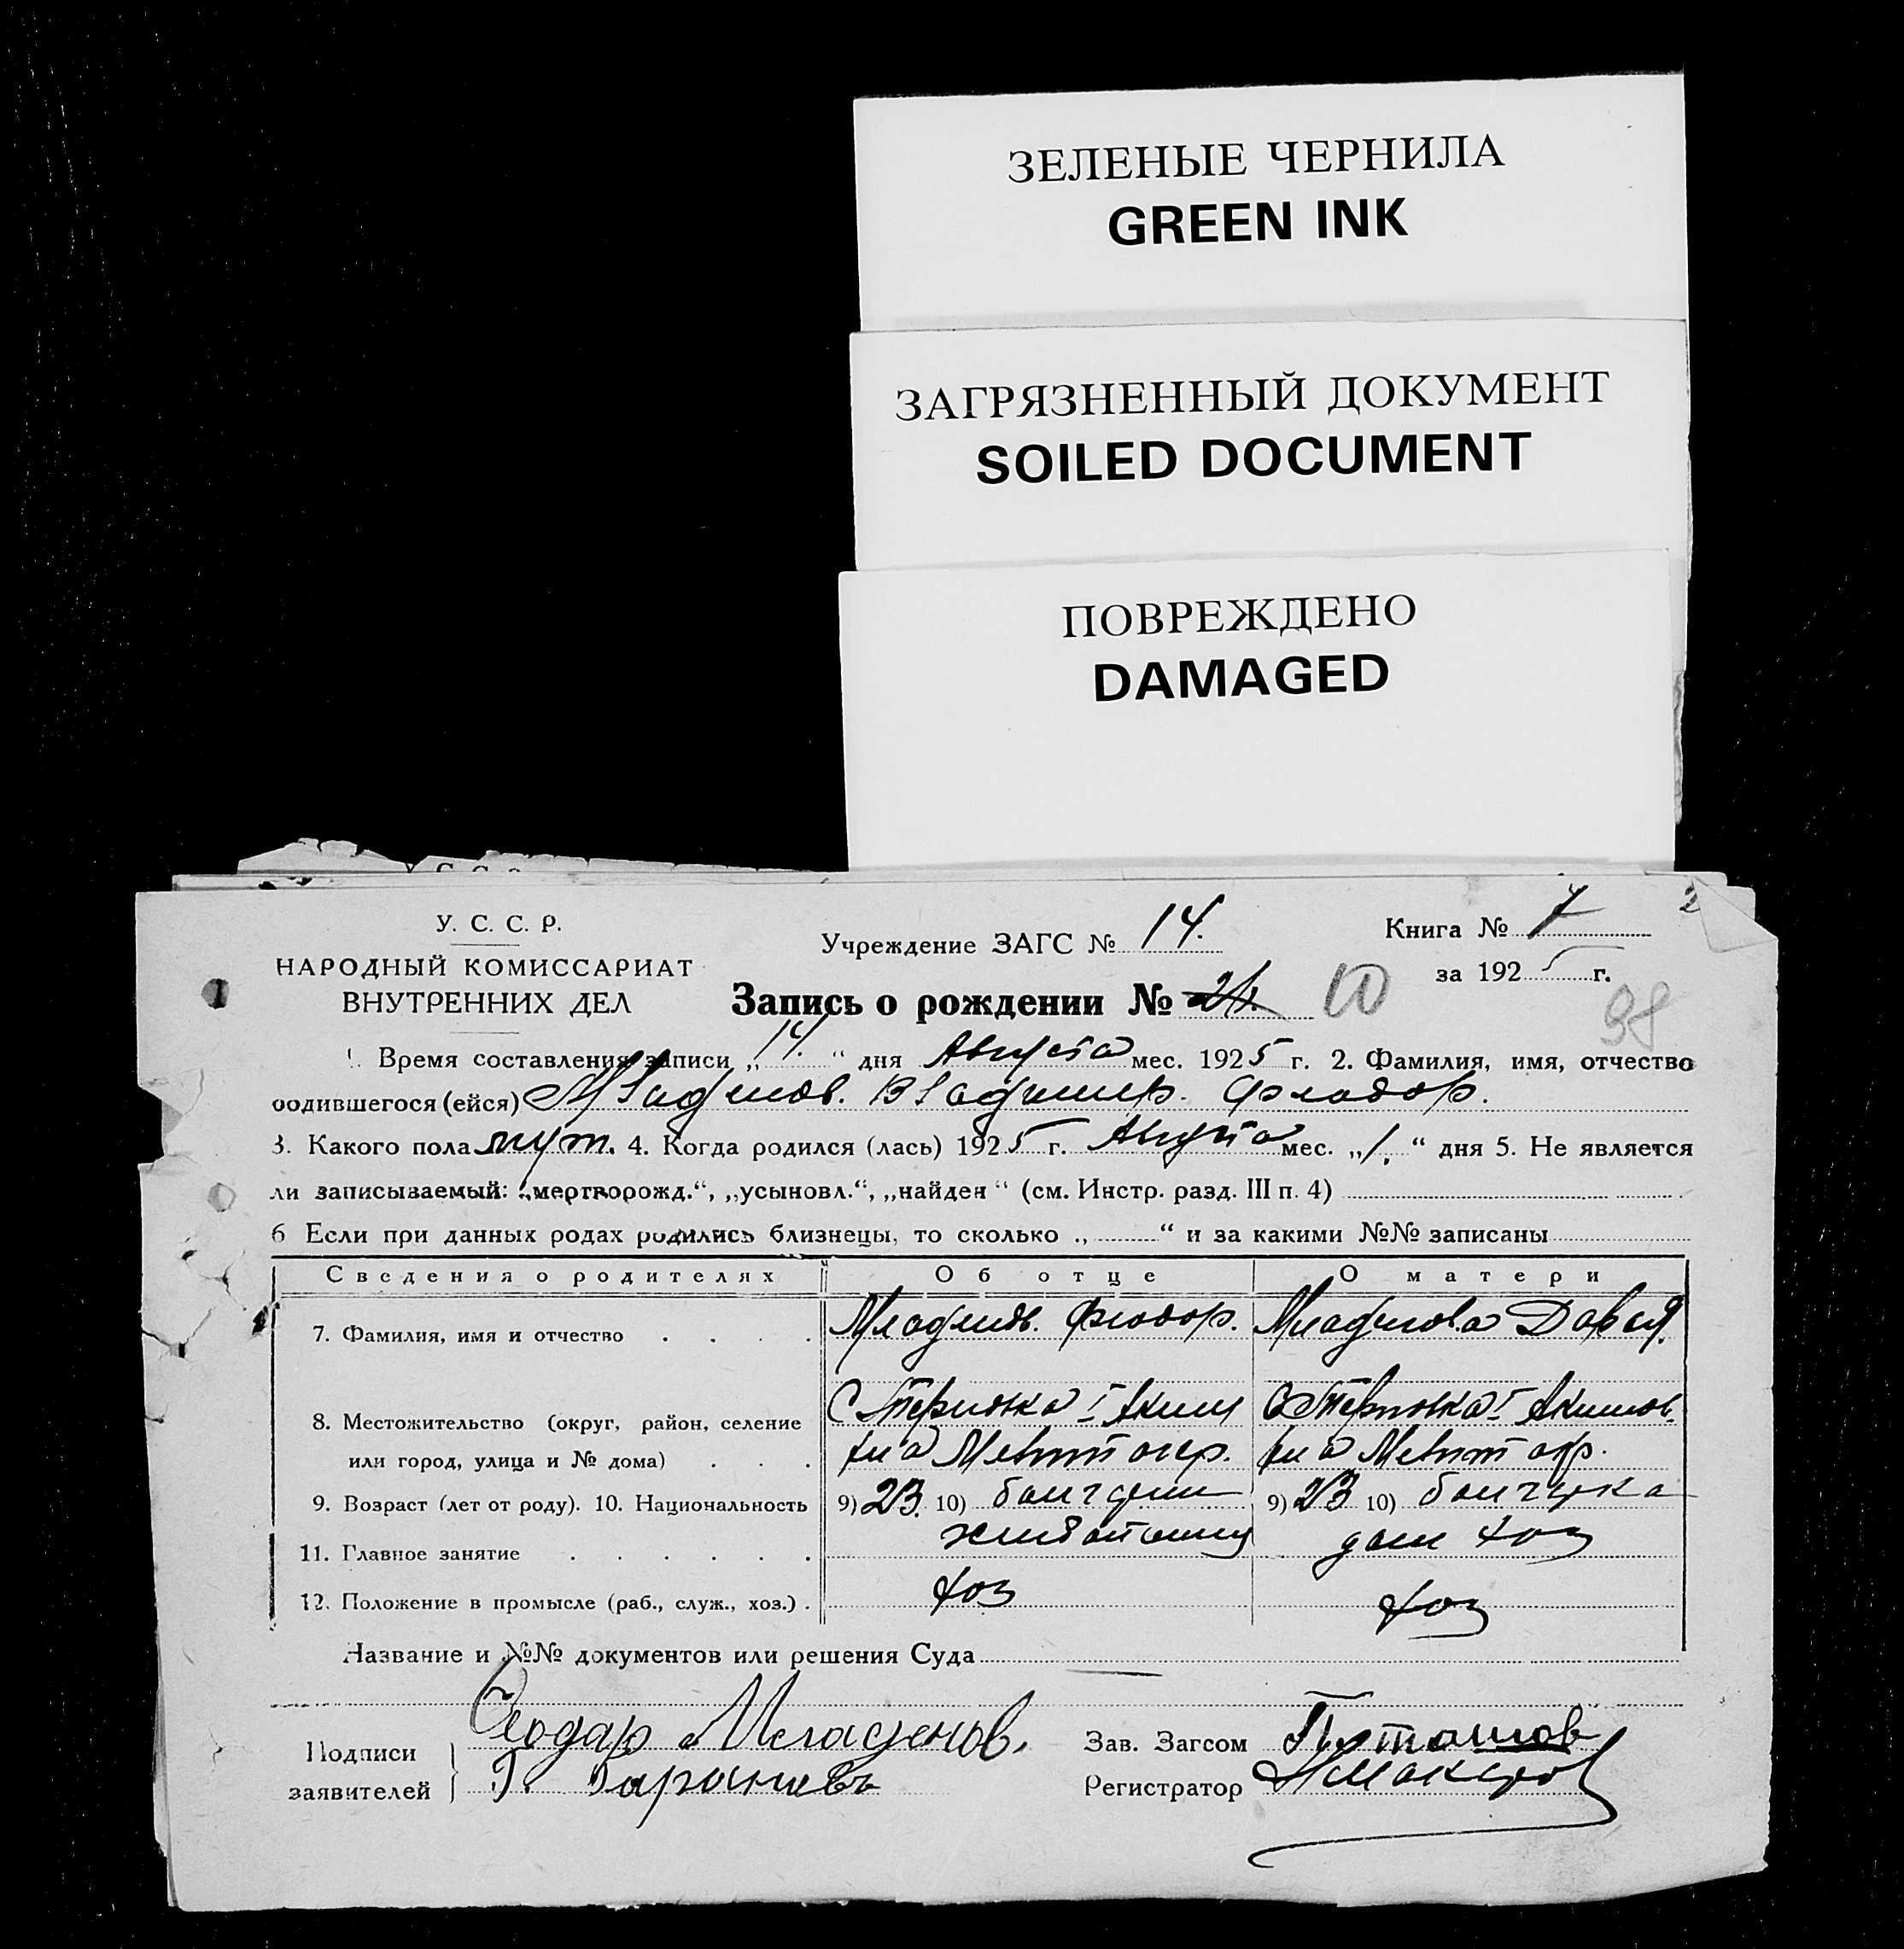 ЗЕЛЕНЫЕ ЧЕРНИЛА
GREEN INK
ЗАГРЯЗНЕННЫЙ ДОКУМЕНТ
SOILED DOCUMENT
ПОВРЕЖДЕНО
DAMAGED
У. С. С. Р.
НАРОДНЫЙ КОМИССАРИАТ
ВНУТРЕННИХ ДЕЛ
Учреждение ЗАГС № 14.
Книга № 7
за 1925 г.
98
Запись о рождении № 24. 10
1. Время составления записи „14.“ дня Августа мес. 1925 г. 2. Фамилия, имя, отчество
родившегося (ейся) Владимир. Фиодор.
3. Какого пола муж. 4. Когда родился (лась) 1925 г. Августа мес. „1.“ дня 5. Не является
ли записываемый: „мертворожд.“, „усыновл.“, „найден“ (см. Инстр. разд. III п. 4)
6 Если при данных родах родились близнецы, то сколько „ “ и за какими №№ записаны
Сведения о родителях Об отце О матери
7. Фамилия, имя и отчество Фиодор.
8. Местожительство (округ, район, селение С Терновка I Аким С Терновка I Акимов.
или город, улица и № дома) р на Мелит окр. р на Мелит окр.
9. Возраст (лет от роду). 10. Национальность 9) 23. 10) болгарин 9) 23 10) болгарка
11. Главное занятие дом хоз
12. Положение в промысле (раб., служ., хоз.) хоз хоз
Название и №№ документов или решения Суда
Подписи
заявителей
Феодар Младенов.
Г. Гаранчевъ
Зав. Загсом
Регистратор